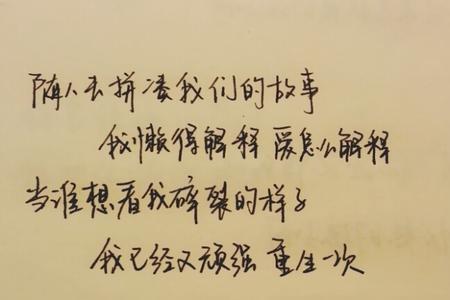 随人去拼凑我们的故事
我懒得解释 爱怎么解释
当谁想看我碎裂的样子
我已经又顽强 重生一次